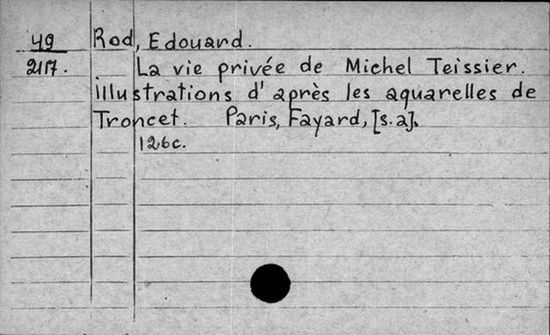 49 Rod, Edouard.
2117. La vie privée de Michel Teissier.
Illustrations d'après les aquarelles de
Troncet. Paris, Fayard, [s.a].
126c.